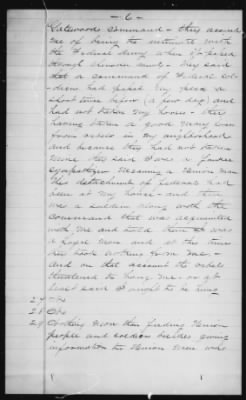 - 6 -
Gatewoods command - they accused
me of being the intimate with
the Federal Army when it passed
through Union County - they said
that a command of Federal sol-
diers had passed my place a
short time before (a few days) and
had not taken my horses - they
having taken a good many horses
from others in my neighborhood
and because they had not taken
mine they said I was a Yankee
sympathizer meaning a Union man
this detachment of Federals had
been at my house - and there
was a soldier along with the
command that was acquainted
with me and told them I was
a loyal man and at this time
they took nothing from me -
and on that account the rebels
threatened to hang me - or at
least said I ought to be hung
27 - No
28 - No
29 - Nothing more than feeding Union
people and soldiers besides giving
information to Union men who